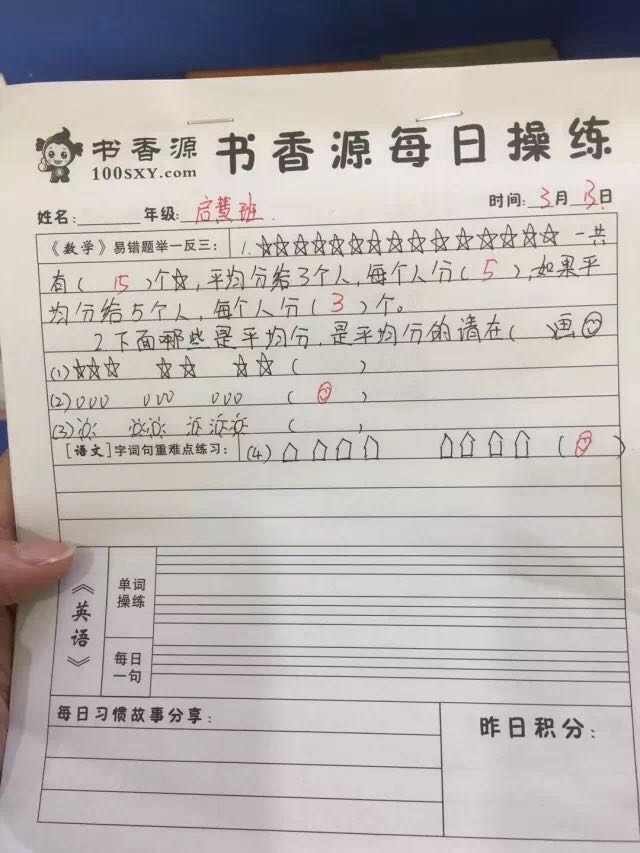 书香源
100SXY.com
书香源每日操练
姓名: 年级: 启慧班 时间: 3月13日
《数学》易错题举一反三: 1.☆☆☆☆☆☆☆☆☆☆☆☆☆☆☆ 一共
有( 15 )个☆,平均分给3个人,每个人分( 5 ),如果平
均分给5个人,每个人分( 3 )个。
2下面哪些是平均分,是平均分的请在( )画☺
(1)☆☆☆ ☆☆ ☆☆ ( )
(2)000 000 000 ( ☺ )
(3) ( )
[语文]字词句重难点练习: (4) ( ☺ )
《英语》
单词
操练
每日
一句
每日习惯故事分享:
昨日积分: